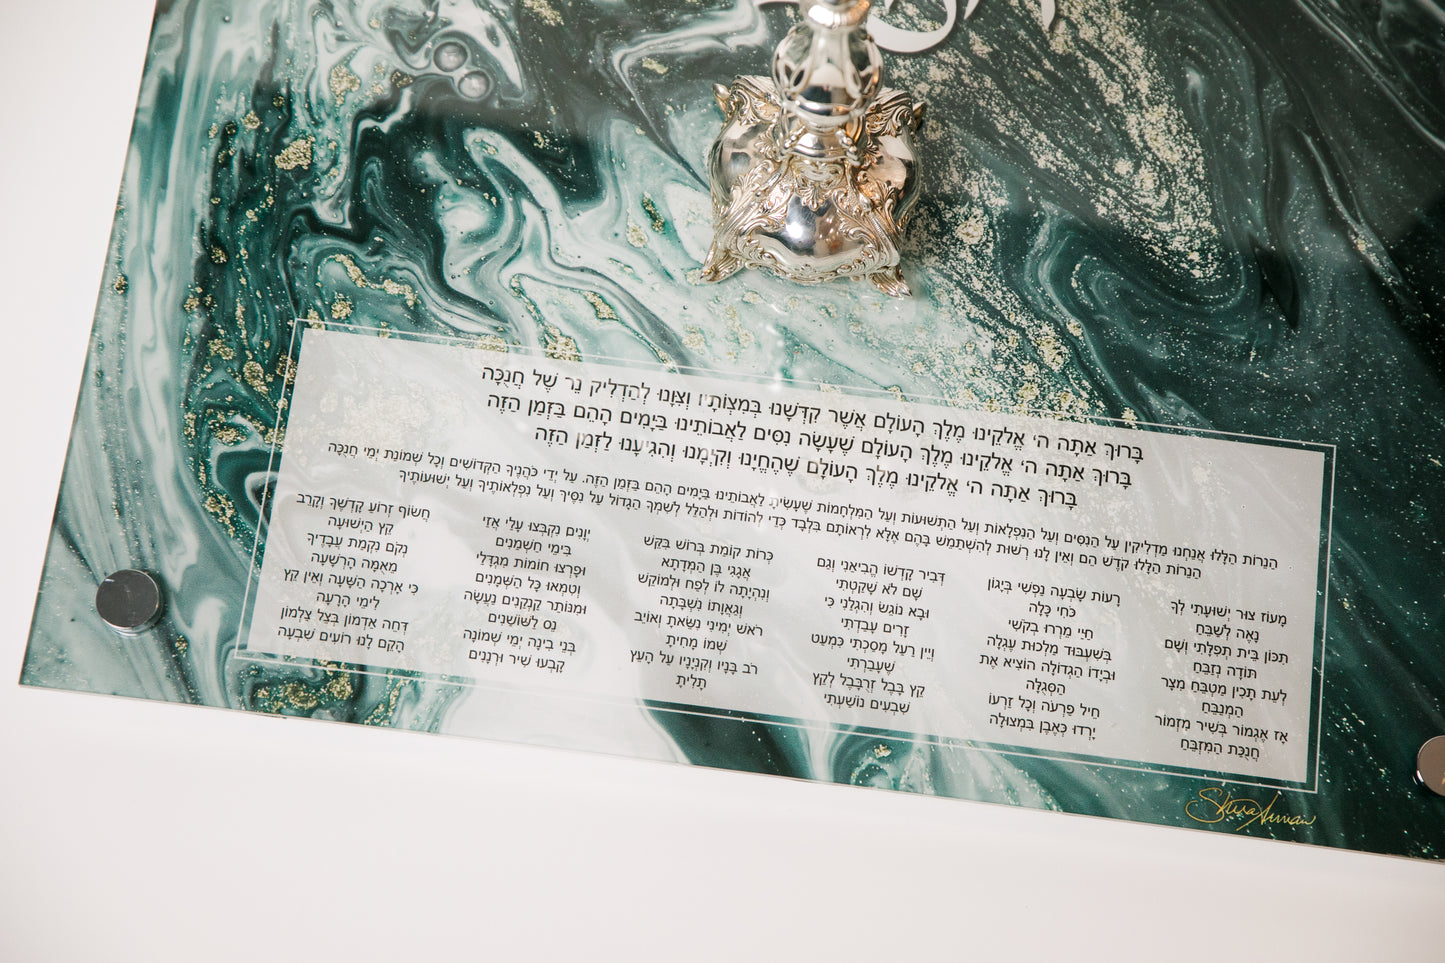 בָּרוּךְ אַתָּה ה׳ אֱלֹקֵינוּ מֶלֶךְ הָעוֹלָם אֲשֶׁר קִדְּשָׁנוּ בְּמִצְוֹתָיו וְצִוָּנוּ לְהַדְלִיק נֵר שֶׁל חֲנֻכָּה
בָּרוּךְ אַתָּה ה׳ אֱלֹקֵינוּ מֶלֶךְ הָעוֹלָם שֶׁעָשָׂה נִסִּים לַאֲבוֹתֵינוּ בַּיָּמִים הָהֵם בַּזְּמַן הַזֶּה
בָּרוּךְ אַתָּה ה׳ אֱלֹקֵינוּ מֶלֶךְ הָעוֹלָם שֶׁהֶחֱיָנוּ וְקִיְּמָנוּ וְהִגִּיעָנוּ לַזְּמַן הַזֶּה
הַנֵּרוֹת הַלָּלוּ אֲנַחְנוּ מַדְלִיקִין עַל הַנִּסִּים וְעַל הַנִּפְלָאוֹת וְעַל הַתְּשׁוּעוֹת וְעַל הַמִּלְחָמוֹת שֶׁעָשִׂיתָ לַאֲבוֹתֵינוּ בַּיָּמִים הָהֵם בַּזְּמַן הַזֶּה. עַל יְדֵי כֹּהֲנֶיךָ הַקְּדוֹשִׁים וְכָל שְׁמוֹנַת יְמֵי חֲנֻכָּה
הַנֵּרוֹת הַלָּלוּ קֹדֶשׁ הֵם וְאֵין לָנוּ רְשׁוּת לְהִשְׁתַּמֵּשׁ בָּהֶם אֶלָּא לִרְאוֹתָם בִּלְבָד כְּדֵי לְהוֹדוֹת וּלְהַלֵּל לְשִׁמְךָ הַגָּדוֹל עַל נִסֶּיךָ וְעַל נִפְלְאוֹתֶיךָ וְעַל יְשׁוּעוֹתֶיךָ
מָעוֹז צוּר יְשׁוּעָתִי לְךָ
נָאֶה לְשַׁבֵּחַ
תִּכּוֹן בֵּית תְּפִלָּתִי וְשָׁם
תּוֹדָה נְזַבֵּחַ
לְעֵת תָּכִין מַטְבֵּחַ מִצָּר
הַמְנַבֵּחַ
אָז אֶגְמוֹר בְּשִׁיר מִזְמוֹר
חֲנֻכַּת הַמִּזְבֵּחַ
רָעוֹת שָׂבְעָה נַפְשִׁי בְּיָגוֹן
כֹּחִי כָּלָה
חַיַּי מֵרְרוּ בְּקֹשִׁי
בְּשִׁעְבּוּד מַלְכוּת עֶגְלָה
וּבְיָדוֹ הַגְּדוֹלָה הוֹצִיא אֶת
הַסְּגֻלָּה
חֵיל פַּרְעֹה וְכָל זַרְעוֹ
יָרְדוּ כְּאֶבֶן בִּמְצוּלָה
דְּבִיר קָדְשׁוֹ הֱבִיאַנִי וְגַם
שָׁם לֹא שָׁקַטְתִּי
וּבָא נוֹגֵשׂ וְהִגְלַנִי כִּי
זָרִים עָבַדְתִּי
וְיֵין רַעַל מָסַכְתִּי כִּמְעַט
שֶׁעָבַרְתִּי
קֵץ בָּבֶל זְרֻבָּבֶל לְקֵץ
שִׁבְעִים נוֹשַׁעְתִּי
כְּרוֹת קוֹמַת בְּרוֹשׁ בִּקֵּשׁ
אֲגָגִי בֶּן הַמְּדָתָא
וְנִהְיָתָה לוֹ לְפַח וּלְמוֹקֵשׁ
וְגַאֲוָתוֹ נִשְׁבָּתָה
רֹאשׁ יְמִינִי נִשֵּׂאתָ וְאוֹיֵב
שְׁמוֹ מָחִיתָ
רֹב בָּנָיו וְקִנְיָנָיו עַל הָעֵץ
תָּלִיתָ
יְוָנִים נִקְבְּצוּ עָלַי אֲזַי
בִּימֵי חַשְׁמַנִּים
וּפָרְצוּ חוֹמוֹת מִגְדָּלַי
וְטִמְּאוּ כָּל הַשְּׁמָנִים
וּמִנּוֹתַר קַנְקַנִּים נַעֲשָׂה
נֵס לַשּׁוֹשַׁנִּים
בְּנֵי בִינָה יְמֵי שְׁמוֹנָה
קָבְעוּ שִׁיר וּרְנָנִים
חֲשׂוֹף זְרוֹעַ קָדְשֶׁךָ וְקָרֵב
קֵץ הַיְשׁוּעָה
נְקֹם נִקְמַת עֲבָדֶיךָ
מֵאֻמָּה הָרְשָׁעָה
כִּי אָרְכָה הַשָּׁעָה וְאֵין קֵץ
לִימֵי הָרָעָה
דְּחֵה אַדְמוֹן בְּצֵל צַלְמוֹן
הָקֵם לָנוּ רוֹעִים שִׁבְעָה